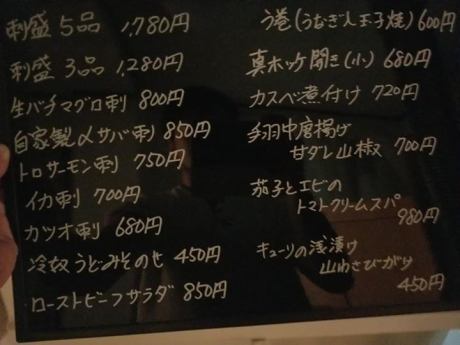 刺盛 5品 1,780円
刺盛 3品 1,280円
生バチマグロ刺 800円
自家製〆サバ刺 850円
トロサーモン刺 750円
イカ刺 700円
カツオ刺 680円
冷奴 うどみそのせ 450円
ローストビーフサラダ 850円
う巻(うなぎ入玉子焼) 600円
真ホッケ開き(小) 680円
カスベ煮付け 720円
手羽中唐揚げ
甘ダレ山椒 700円
茄子とエビの
トマトクリームスパ
980円
キューリの浅漬け
山わさびがけ
450円